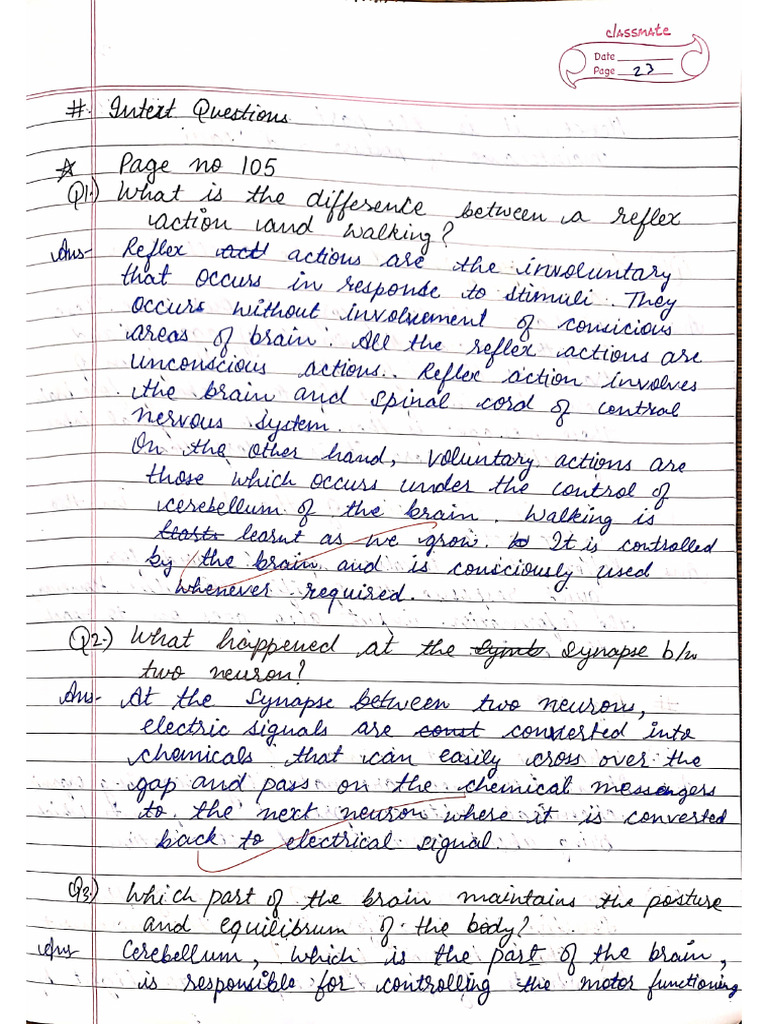 classmate
Date
Page 23
#. Intext Questions
☆ Page no 105
Q1.) What is the difference between a reflex
action and walking?
Ans- Reflex act actions are the involuntary
that occurs in response to stimuli. They
occurs without involvement of conscious
areas of brain. All the reflex actions are
unconscious actions. Reflex action involves
the brain and spinal cord of control
nervous system.
On the other hand, voluntary actions are
those which occurs under the control of
cerebellum of the brain. Walking is
learnt as we grow. It is controlled
by the brain and is consciously used
whenever required.
Q2.) What happened at the Synapse b/w
two neuron?
Ans- At the Synapse between two neurons,
electric signals are const converted into
chemicals that can easily cross over the
gap and pass on the chemical messengers
to the next neuron where it is converted
back to electrical signal.
Q3.) Which part of the brain maintains the posture
and equilibrum of the body?
Ans Cerebellum, which is the part of the brain,
is responsible for controlling the motor functioning